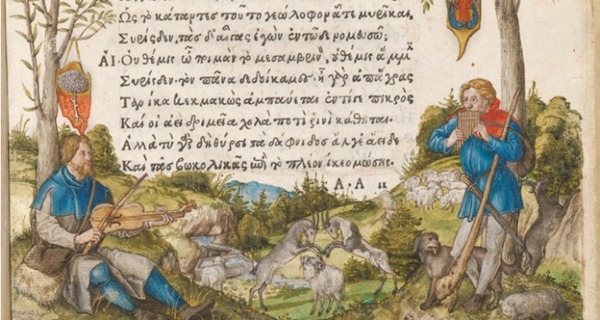 Ὡς τὸ κάταντες τοῦτο γεώλοφον ἅτε μυρῖκαι,
Συρίσδεν, τὰς δ' αἶγας ἐγὼν ἐν τῷδε νομευσῶ;
ΑΙ. Οὐ θέμις ὦ ποιμὰν τὸ μεσαμβρινὸν, οὐ θέμις ἄμμιν
Συρίσδεν· τὸν πᾶνα δεδοίκαμες· ἦ γὰρ ἀπ' ἄγρας
Τανίκα κεκμακὼς ἀμπαύεται ἐντί γε πικρὸς
Καὶ οἱ ἀεὶ δριμεῖα χολὰ ποτὶ ῥινὶ κάθηται.
Ἀλλὰ τὺ γὰρ δὴ θύρσι τὰ δάφνιδος ἄλγε ἄειδες
Καὶ τᾶς βωκολικᾶς ἐπὶ τὸ πλέον ἵκεο μώσης.
A.A ii